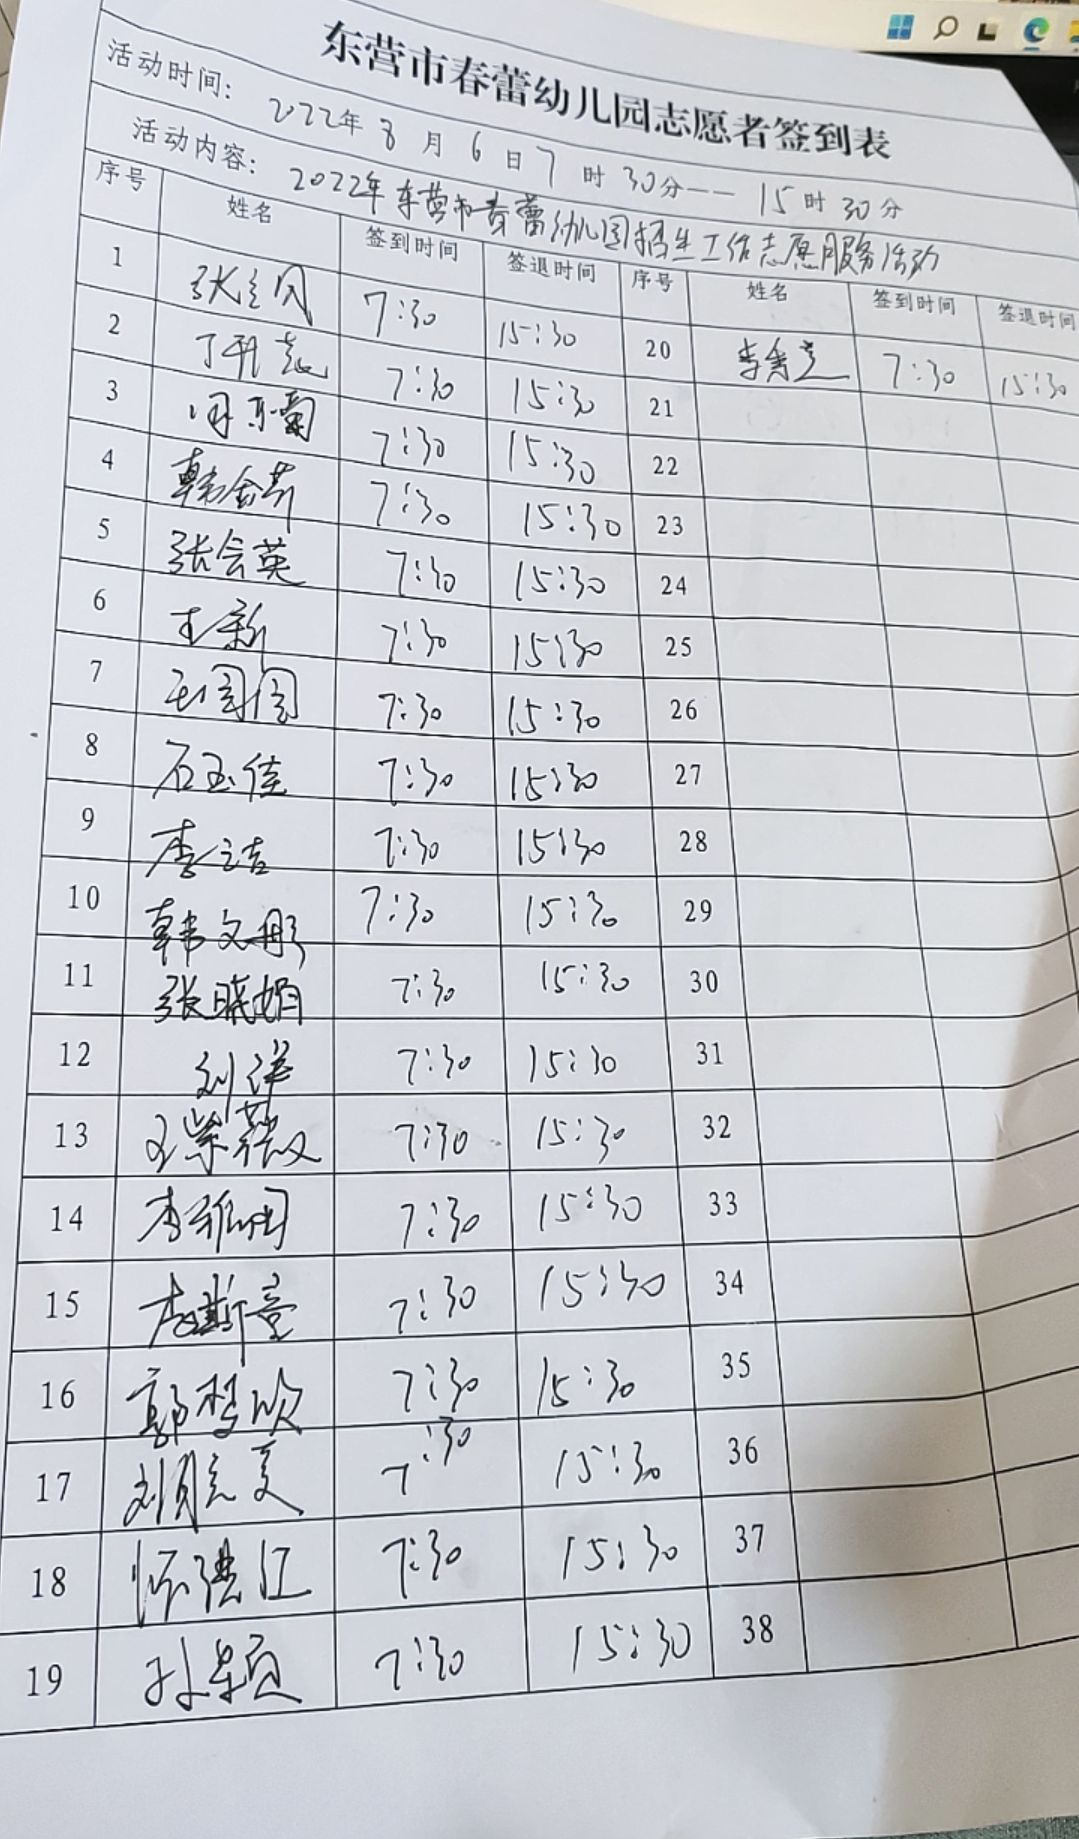 东营市春蕾幼儿园志愿者签到表
活动时间: 2022年 8 月 6 日 7 时 30分—— 15时 30分
活动内容: 2022年东营市春蕾幼儿园招生工作志愿服务活动
序号 姓名 签到时间 签退时间 序号 姓名 签到时间 签退时间
1 7:30 15:30 20 7:30 15:30
2 7:30 15:30 21
3 7:30 15:30 22
4 7:30 15:30 23
5 张会英 7:30 15:30 24
6 王新 7:30 15:30 25
7 7:30 15:30 26
8 石玉佳 7:30 15:30 27
9 李洁 7:30 15:30 28
10 韩文彤 7:30 15:30 29
11 张晓娟 7:30 15:30 30
12 刘洋 7:30 15:30 31
13 王紫薇 7:30 15:30 32
14 7:30 15:30 33
15 李斯童 7:30 15:30 34
16 郭梦欣 7:30 15:30 35
17 7:30 15:30 36
18 7:30 15:30 37
19 孙颖 7:30 15:30 38